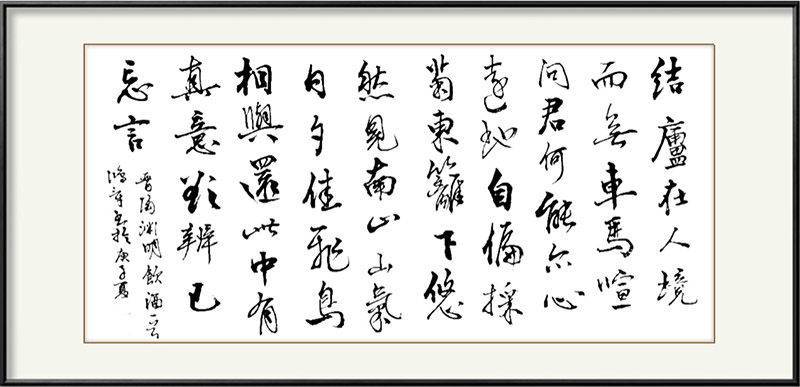 結廬在人境
而無車馬喧
问君何能尔心
遠地自偏採
菊東籬下悠
然見南山山氣
日夕佳飛鳥
相與還此中有
真意欲辨已
忘言
晋陶渊明飲酒一首
書於庚子夏